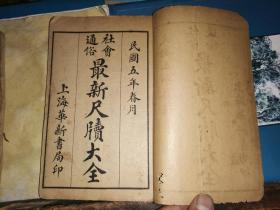 民國五年春月
社會
通俗
最新尺牘大全
上海華新書局印